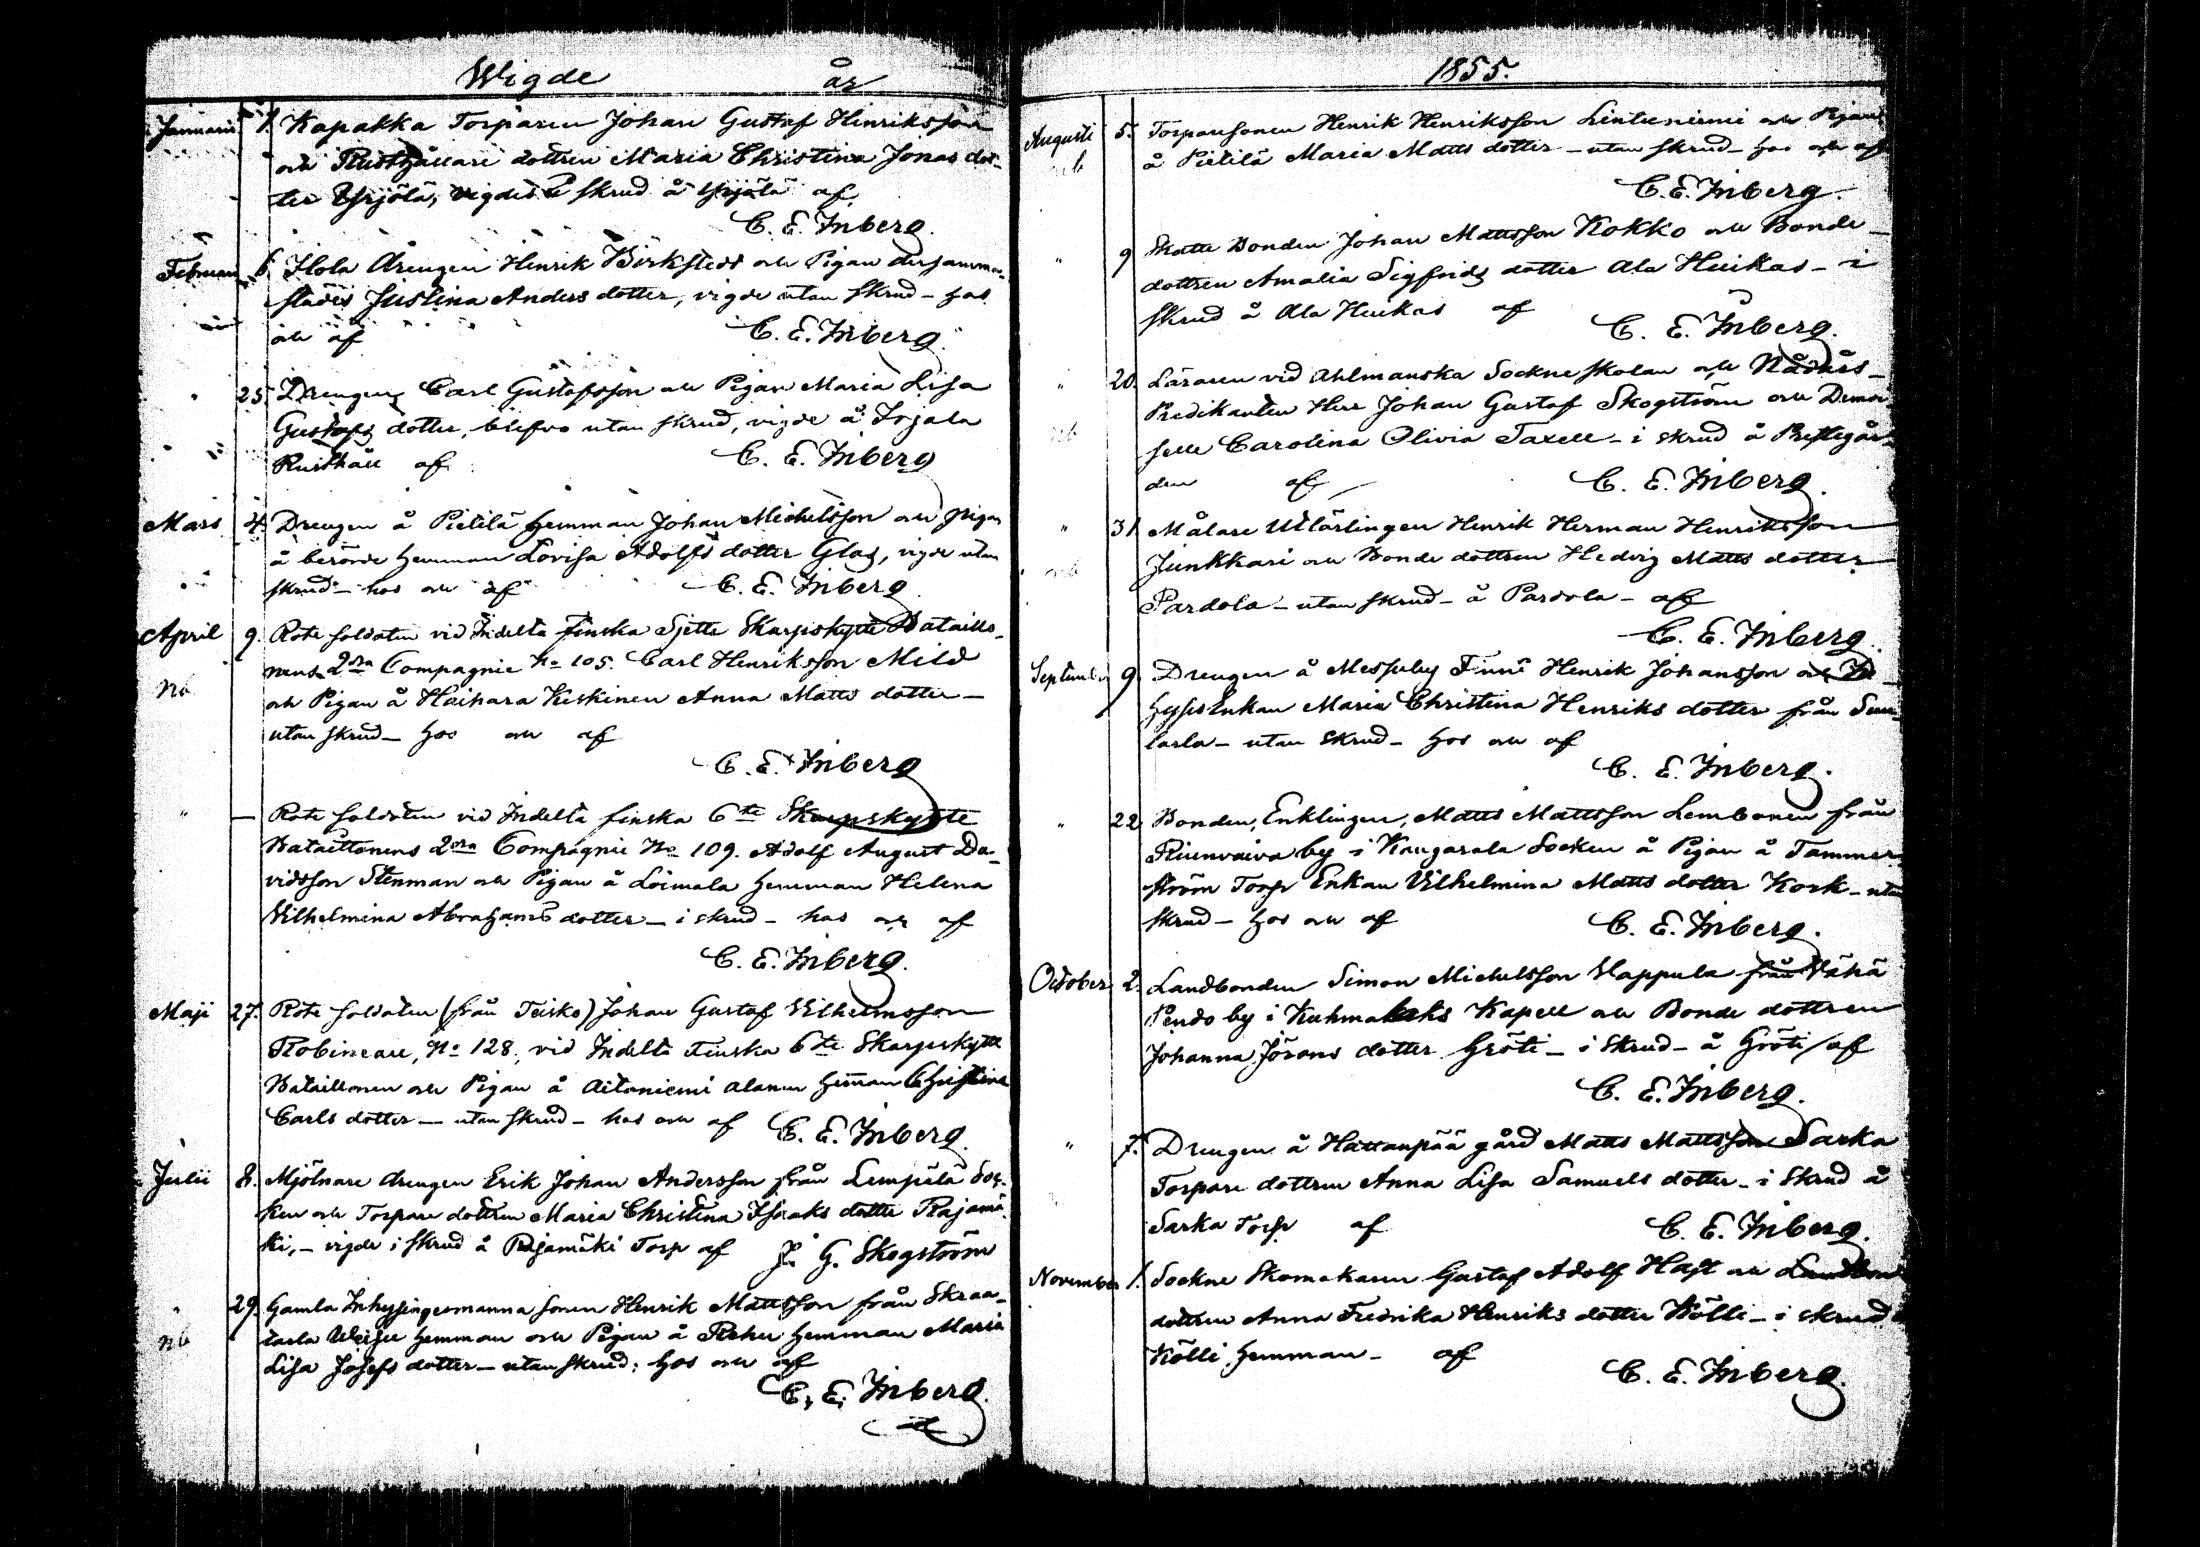 Wigde år
Januarii 1. Kapakka Torparen Johan Gustaf Hinriksson
och Rusthållare dottren Maria Christina Jonas dot-
ter Yrjölä, vigdes i skrud å Yrjölä af
C. E. Inberg.
Februari 6. Ilola drengen Henrik Birkstedt och Pigan dersamma-
städes Justina Anders dotter, vigde utan skrud - hos
och af C. E. Inberg.
" 25. Drengen Carl Gustafsson och Pigan Maria Lisa
Gustafs dotter, blefvo utan skrud, vigde å Irjala
Rusthåll af C. E. Inberg
Mars 4. Drengen å Pietilä hemman Johan Michelsson och pigan
å berörde hemman Lovisa Adolfs dotter Glad, vigde utan
skrud - hos och af C. E. Inberg.
April 9. Rote soldaten vid Indelta finska Sjette Skarpskytte Bataillo-
nb nens 2dra Compagnie No 105. Carl Henriksson Mild
och Pigan å Haihara Keskinen Anna Matts dotter -
utan skrud - hos och af
C. E. Inberg
" — Rote soldaten vid Indelta finska 6te Skarpskytte
Bataillonens 2dra Compagnie No 109. Adolf August Da-
vidsson Stenman och Pigan å Loimala hemman Helena
Vilhelmina Abrahams dotter - i skrud - hos och af
C. E. Inberg.
Maji 27. Rote soldaten (från Teisko) Johan Gustaf Vilhelmsson
Robineau, No 128, vid Indelta Finska 6te Skarpskytte
Bataillonen och Pigan å Aitoniemi Alanen hemman Christina
Carls dotter - utan skrud - hos och af C. E. Inberg.
Julii 8. Mjölnare drengen Erik Johan Andersson från Lempälä Soc-
ken och Torpare dottren Maria Christina Isaaks dotter Rajamä-
ki, - vigde i skrud å Rajamäki Torp af J. G. Skogström
" 29. Gamla Inhysingesmanna sonen Henrik Mattsson från Skraa-
nb tarla hemman och Pigan å hemman Maria
Lisa Josefs dotter - utan skrud: hos och af
C. E. Inberg.
1855.
Augusti 5. Torparesonen Henrik Henriksson Lintuniemi och Pigan
nb å Pietilä Maria Matts dotter - utan skrud - hos och af
C. E. Inberg.
" 9 Skatte Bonden Johan Mattsson Kokko och Bonde-
dottren Amalia Sigfrids dotter Ala Huikas - i
skrud å Ala Huikas af C. E. Inberg.
" 20. Läraren vid Ahlmanska Sockneskolan och Nådårs-
Predikanten Herr Johan Gustaf Skogström och Demoi-
nb selle Carolina Olivia Taxell - i skrud å Prestegår-
den af C. E. Inberg.
" 31 Målare Utlärlingen Henrik Herman Henriksson
nb Junkkari och Bonde dottren Hedvig Matts dotter
Pardola - utan skrud - å Pardola - af
C. E. Inberg.
September 9. Drengen å Messuby Finni Henrik Johansson och In-
hyses Enkan Maria Christina Henriks dotter från
- utan skrud - hos och af
C. E. Inberg.
" 22 Bonden, Enklingen, Matts Mattsson Lembonen från
Riuenvaiva by i Kangasala Socken å Pigan å Tammer-
ström Torp Enkan Vilhelmina Matts dotter Kork - utan
skrud - hos och af C. E. Inberg.
October 2. Landbonden Simon Michelsson Wappula från Vähä
Pento by i Kuhmalahks Kapell och Bonde dottren
Johanna Jörans dotter Gröti - i skrud - å Gröti af
C. E. Inberg.
" 7. Drengen å Hattanpää gård Matts Mattsson Sarka
Torpare dottren Anna Lisa Samuels dotter - i skrud å
Sarka Torp af C. E. Inberg.
November 1. Sockne Skomakaren Gustaf Adolf Haft och Landbonde
dottren Anna Fredrika Henriks dotter Kölli - i skrud å
Kölli hemman - af C. E. Inberg.